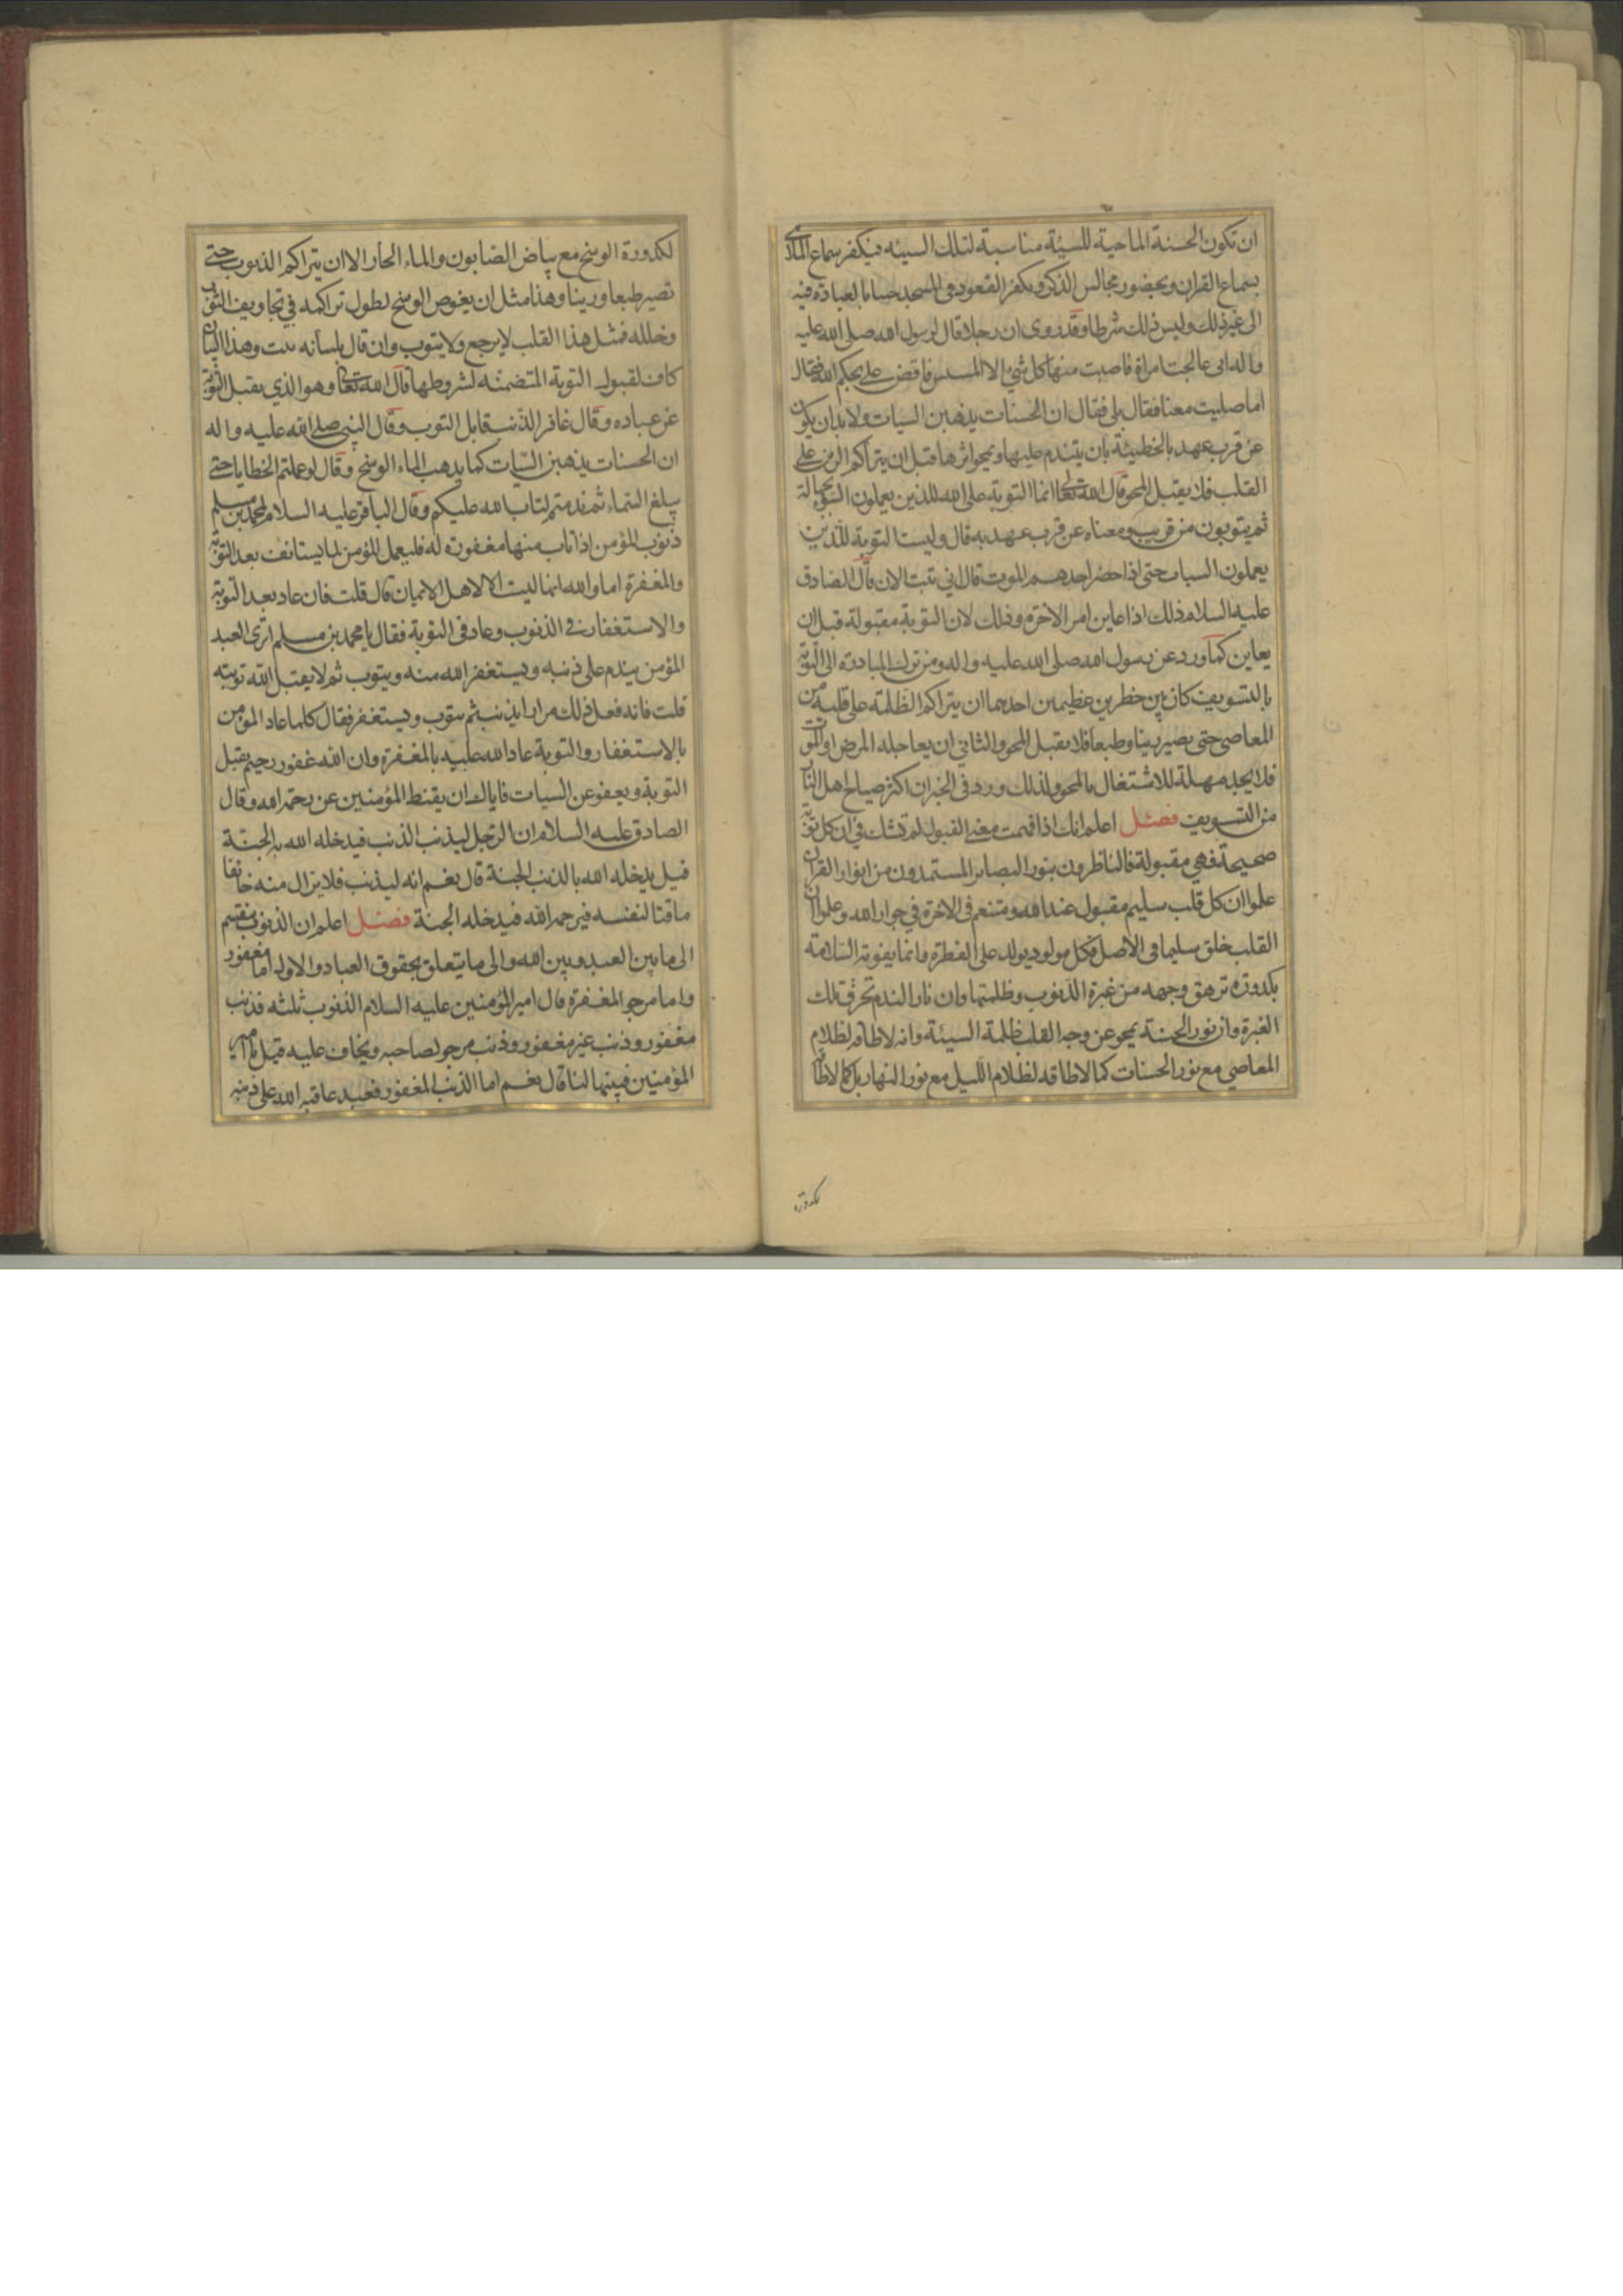 ان تكون الحسنة الماحية للسيئة مناسبة لتلك السيئه فيكفر سماع الملاهى
بسماع القران وبحضور مجالس الذكر ويكفر القعود فى المسجد جنبا بالعبادة فيه
الى غير ذلك وليس ذلك شرطا وقد روى ان رجلا قال لرسول الله صلى الله عليه
واله انى عالجت امراة فاصبت منها كل شيء الا المسيس فاقض على بحكم الله فقال
اما صليت معنا فقال بلى فقال ان الحسنات يذهبن السيات ولابد ان يكون
عن قرب عهد بالخطيئة بان يتندم عليها ويمحو اثرها قبل ان يتراكم الرين على
القلب فلا يقبل المحو قال الله تعالى انما التوبة على الله للذين يعملون السوء بجهالة
ثم يتوبون من قريب ومعناه عن قرب عهد به قال وليست التوبة للذين
يعملون السيات حتى اذا حضر احدهم الموت قال اني تبت الان قال الصادق
عليه السلام ذلك اذا عاين امر الاخرة وذلك لان التوبة مقبولة قبل ان
يعاين كما ورد عن رسول الله صلى الله عليه واله ومن ترك المبادرة الى التوبة
بالتسويف كان بين خطرين عظيمين احدهما ان يتراكم الظلمة على قلبه من
المعاصى حتى يصير رينا وطبعا فلا يقبل المحو والثاني ان يعاجله المرض او الموت
فلا يجد مهلة للاشتغال بالمحو ولذلك ورد فى الخبر ان اكثر صياح اهل النار
من التسويف فصل اعلم انك اذا فهمت معنى القبول لم تشك في ان كل توبة
صحيحة فهي مقبولة فالناظرون بنور البصائر المستمدون من انوار القران
علموا ان كل قلب سليم مقبول عند الله ومتنعم فى الاخرة في جوار الله وعلموا ان
القلب خلق سليما فى الاصل فكل مولود يولد على الفطرة وانما يفوته السلامة
بكدورة ترهق وجهه من غبرة الذنوب وظلمتها وان نار الندم تحرق تلك
الغبرة وان نور الحسنة يمحو عن وجه القلب ظلمة السيئة وانه لاطاقة لظلام
المعاصي مع نور الحسنات كما لاطاقة لظلام الليل مع نور النهار بل كما لاطاقة
لكدورة
لكدورة الوسخ مع بياض الصابون والماء الحار الا ان يتراكم الذنوب حتى
تصير طبعا ورينا وهذا مثل ان يغوص الوسخ لطول تراكمه في تجاويف الثوب
وخلله فمثل هذا القلب لا يرجع ولا يتوب وان قال بلسانه تبت وهذا البيان
كاف لقبول التوبة المتضمنه لشروطها قال الله تعالى وهو الذي يقبل التوبة
عن عباده وقال غافر الذنب قابل التوب وقال النبى صلى الله عليه واله
ان الحسنات يذهبن السيات كما يذهب الماء الوسخ وقال لو عملتم الخطايا حتى
يبلغ السماء ثم ندمتم لتاب الله عليكم وقال الباقر عليه السلام لمحمد بن مسلم
ذنوب المؤمن اذا تاب منها مغفورة له فليعمل المؤمن لما يستانف بعد التوبة
والمغفرة اما والله انها ليست الا لاهل الايمان قال قلت فان عاد بعد التوبة
والاستغفار فى الذنوب وعاد فى التوبة فقال يا محمد بن مسلم اترى العبد
المؤمن يندم على ذنبه ويستغفر الله منه ويتوب ثم لا يقبل الله توبته
قلت فانه فعل ذلك مرارا يذنب ثم يتوب ويستغفر فقال كلما عاد المؤمن
بالاستغفار والتوبة عاد الله عليه بالمغفرة وان الله غفور رحيم يقبل
التوبة ويعفو عن السيات فاياك ان يقنط المؤمنين عن رحمة الله وقال
الصادق عليه السلام ان الرجل ليذنب الذنب فيدخله الله به الجنة
قيل يدخله الله بالذنب الجنة قال نعم انه ليذنب فلا يزال منه خائفا
ماقتا لنفسه فيرحمه الله فيدخله الجنة فصل اعلم ان الذنوب ينقسم
الى ما بين العبد وبين الله والى ما يتعلق بحقوق العباد والاول اما مغفور
واما مرجو المغفرة قال امير المؤمنين عليه السلام الذنوب ثلثه فذنب
مغفور وذنب غير مغفور وذنب مرجو لصاحبه ويخاف عليه قيل يا امير
المؤمنين فبينها لنا قال نعم اما الذنب المغفور فعبد عاقبه الله على ذنبه